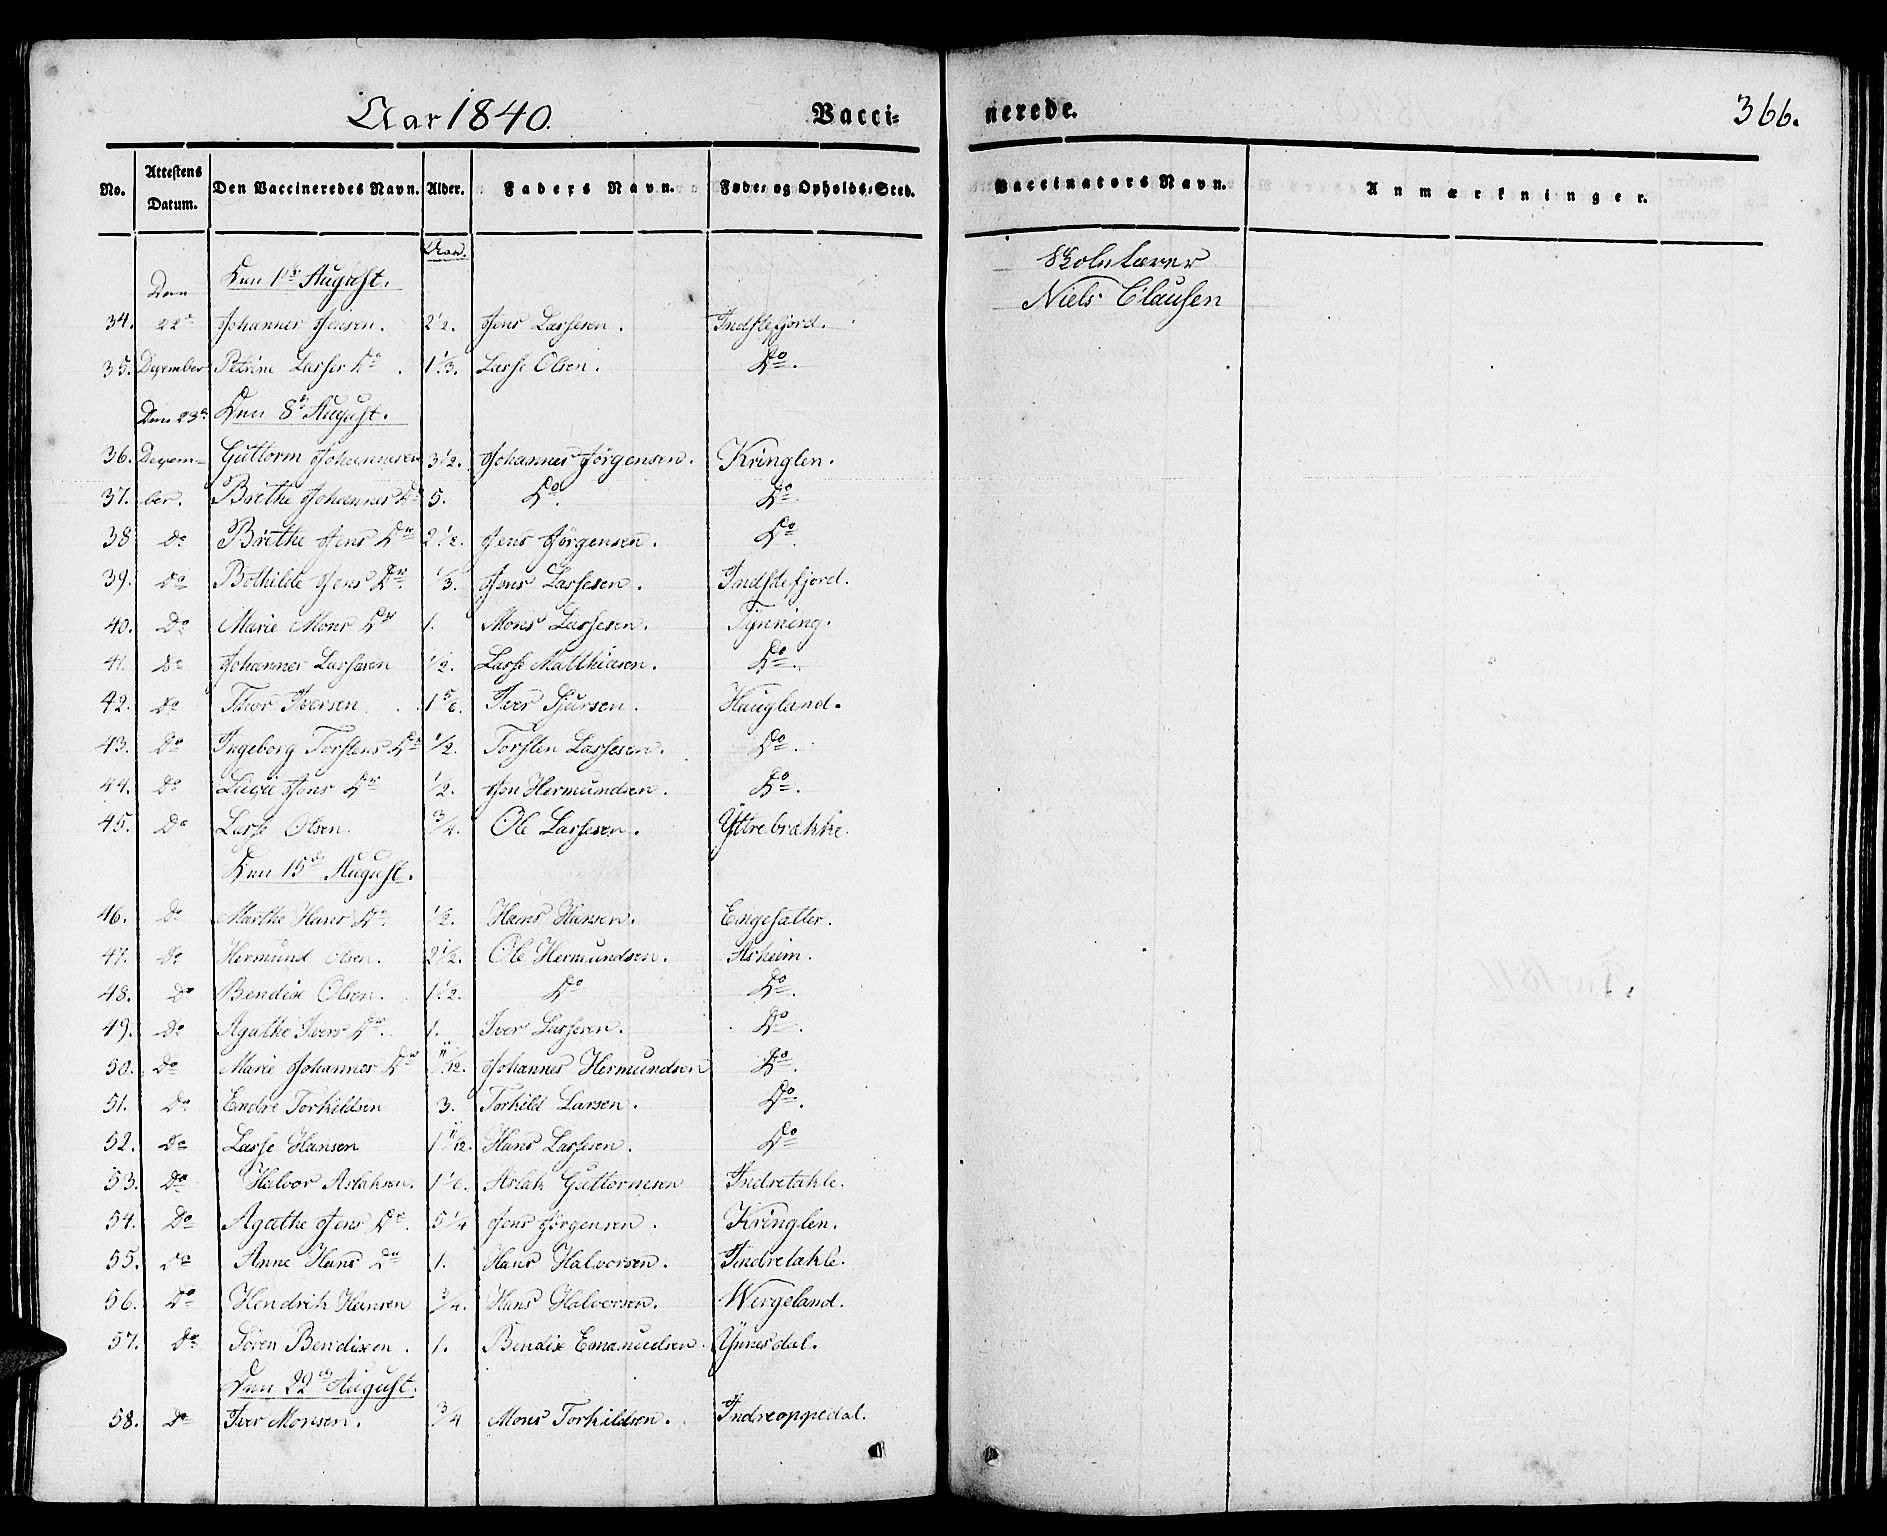 Aar 1840. Vacci- nerede. 366.
No. Attestens Datum. Den Vaccineredes Navn. Alder. Faders Navn. Føde- og Opholds-Sted. Vaccinators Navn. Anmærkninger.
Aar.
Den Den 1ste August. Skolelærer
Niels Clausen
34. 22de Johannes Jensen. 2 1/2. Jens Larsesen. Indstefjord.
35. Dezember Petrine Larses Dr. 1 1/3. Larse Olsen. Do.
Den 23de Den 8de August.
36. Dezem- Guttorm Johannesen 3 1/2. Johannes Jörgensen. Kringlen.
37. ber. Brithe Johannes Dr 5. Do. Do.
38 Do Brithe Jens Dr 2 1/2. Jens Jörgensen. Do.
39. Do Bothilde Jens Dr. 1/3. Jens Larsesen. Indstefjord.
40. Do Marie Mons Dr 1. Mons Larsesen. Tynning.
41. Do Johannes Larsesen 1/2. Larse Matthiasen. Do.
42. Do Thor Iversen. 1 5/6. Iver Sjursen. Haugland.
43. Do Ingeborg Torstens Dr 1/2. Torsten Larsesen. Do.
44. Do Jons Dr 1/2. Jon Hermundsen. Do.
45. Do Larse Olsen. 3/4. Ole Larsesen. Yttrebrække.
Den 15de August.
46. Do Marthe Hans Dr. 1/2. Hans Hansen. Engesætter.
47. Do Hermund Olsen. 2 1/2. Ole Hermundsen. Asheim.
48. Do Bendix Olsen. 1 1/2. Do Do.
49. Do Agathe Ivers Dr. 1. Iver Larsesen. Do.
50. Do Marie Johannes Dr 11/12. Johannes Hermundsen Do.
51. Do Endre Torkildsen 3. Torkild Larsen. Do.
52. Do Larse Hansen 1 11/12. Hans Larsesen. Do
53. Do Halvor Aslaksen. 1 1/6. Aslak Guttormsen Indretakle.
54. Do Agathe Jens Dr. 5 1/4 Jens Jörgensen. Kringlen.
55. Do Anne Hans Dr 1. Hans Halvorsen. Indretakle.
56. Do Hendrik Hansen 3/4. Hans Halvorsen. Wergeland.
57. Do Sören Bendixen. 1. Bendix Emanuelsen. Ynnesdal.
Den 22de August.
58. Do Iver Monsen. 3/4 Mons Torkildsen. Indreoppedal.